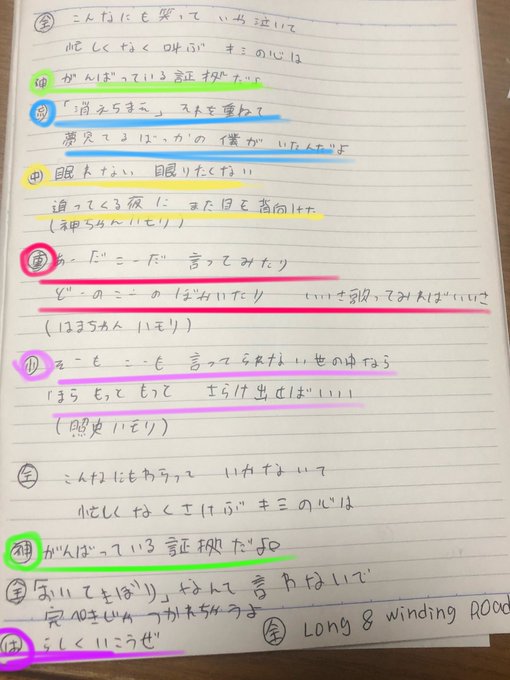 全 こんなにも笑って いや泣いて
忙しくなく叫ぶ キミの心は
神 がんばっている証拠だよ
「消えちまえ」 それを重ねて
夢見てるばっかの僕がいたんだよ
中 眠れない 眠りたくない
迫ってくる夜に また目を背向けた
(神ちゃんハモリ)
重 あーだこーだ 言ってみたり
どーのこーのほざいたり いいさ歌ってみればいいさ
(はまちゃんハモリ)
小 そーもこーも言ってられない世の中なら
ほらもってもって さらけ出せばいい
(照史ハモリ)
全 こんなにもわらって いやないて
忙しくなくさけぶ キミの心は
神 がんばっている証拠だよ
全 「おいてきぼり」なんて言わないで
完ぺきじゃつかれちゃうよ
は らしくいこうぜ 全 Long & winding ROad